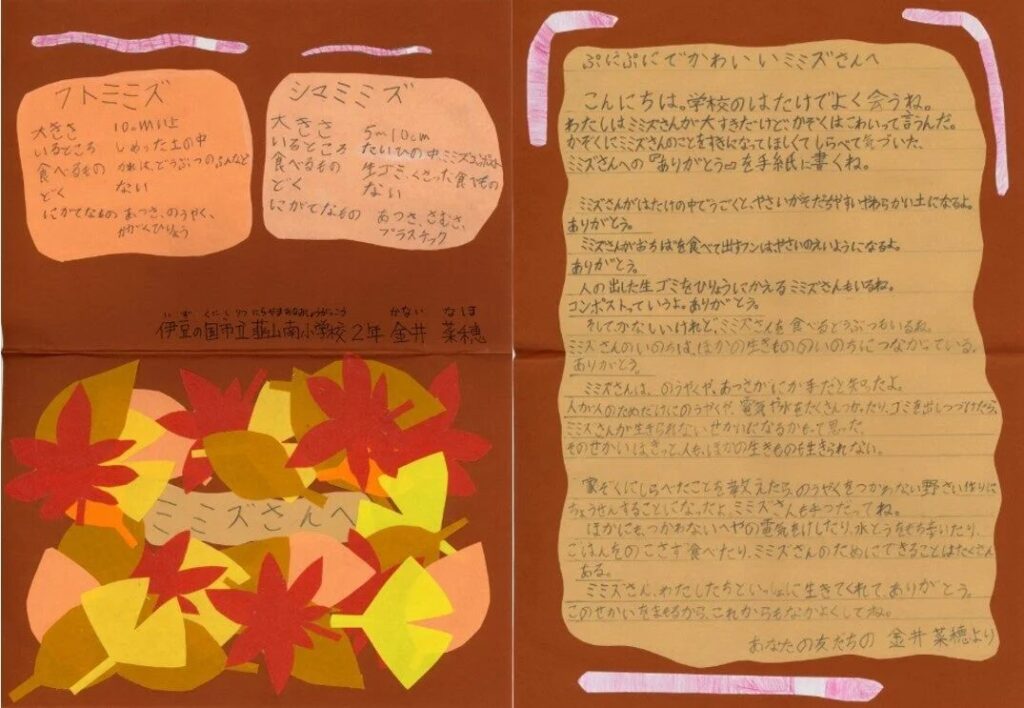 フトミミズ
大きさ 10cm以上
いるところ しめった土の中
食べるもの かれは、どうぶつのふんなど
どく ない
にがてなもの あつさ、のうやく、
かがくひりょう
シマミミズ
大きさ 5〜10cm
いるところ たいひの中
食べるもの 生ゴミ、くさった食べもの
どく ない
にがてなもの あつさ、さむさ、
プラスチック
いず くにしりつにらやまみなみしょうがっこう かない なほ
伊豆の国市立韮山南小学校2年 金井 菜穂
ミミズさんへ
ぷにぷにでかわいいミミズさんへ
こんにちは。学校のはたけでよく会うね。
わたしはミミズさんが大すきだけど、かぞくはこわいって言うんだ。
かぞくにミミズさんのことをすきになってほしくてしらべて気づいた、
ミミズさんへの『ありがとう』を手紙に書くね。
ミミズさんがはたけの中でうごくと、やさいがそだちやすいやわらかい土になるよ。
ありがとう。
ミミズさんがおちばを食べて出すフンはやさいのえいようになるよ。
ありがとう。
人の出した生ゴミをひりょうにかえるミミズさんもいるね。
コンポストっていうよ。ありがとう。
そしてかなしいけれど、ミミズさんを食べるどうぶつもいるね。
ミミズさんのいのちは、ほかの生きもののいのちにつながっている。
ありがとう。
ミミズさんは、のうやくや、あつさがにが手だと知ったよ。
人が人のためだけにのうやくや、電気や水をたくさんつかったり、ゴミを出しつづけたら、
ミミズさんが生きられないせかいになるかもって思った。
そのせかいはきっと、人も、ほかの生きものも生きられない。
かぞくにしらべたことを教えたら、のうやくをつかわない野さい作りに
ちょうせんすることになったよ。ミミズさんも手つだってね。
ほかにも、つかわないへやの電気をけしたり、水とうをもち歩いたり、
ごはんをのこさず食べたり、ミミズさんのためにできることはたくさん
ある。
ミミズさん、わたしたちといっしょに生きてくれて、ありがとう。
このせかいをまもるから、これからもなかよくしてね。
あなたの友だちの 金井 菜穂より